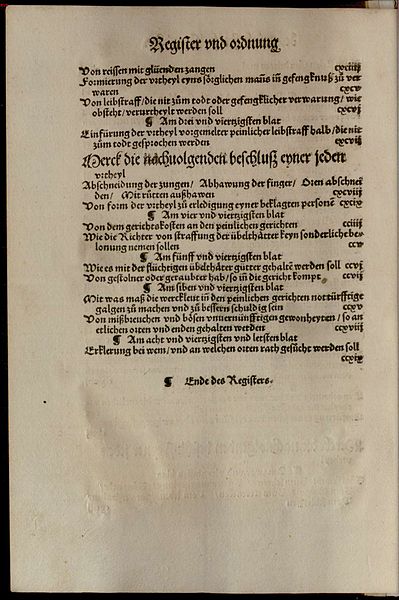 Register vnd ordnung
Von reissen mit glüenden zangen cxciiij
Formierung der vrtheyl eyns sorglichen mañs in gefengknuß zů ver
waren cxcv
Von leibstraff/ die nit zům todt oder gefengklicher verwarung/ wie
obsteht/ verurtheylt werden soll cxcvj
¶ Am drei vnd viertzigsten blat
Einfürung der vrtheyl vorgemelter peinlicher leibstraff halb/ die nit
zům todt gesprochen werden cxcvij
Merck die nachuolgenden beschluß eyner jeden
vrtheyl
Abschneidung der zungen/ Abhawung der finger/ Oren abschnei
den/ Mit růtten außhawen cxcviij
Von form der vrtheyl zů erledigung eyner beklagten personẽ cxcix
¶ Am vier vnd viertzigsten blat
Von dem gerichtskosten an den peinlichen gerichten cciiij
Wie die Richter von straffung der übelthätter keyn sonderliche be-
lonung nemen sollen ccv
¶ Am fünff vnd viertzigsten blat
Wie es mit der flüchtigen übelthäter gütter gehaltẽ werden soll ccvj
Von gestolner oder geraubter hab/ so in die gericht kompt ccvij
¶ Am siben vnd viertzigsten blat
Mit was maß die werckleut in den peinlichen gerichten notturfftige
galgen zů machen vnd zů bessern schuldig sein ccxv
Von mißbreuchen vnd bösen vnuernünfftigen gewonheyten/ so an
etlichen orten vnd enden gehalten werden ccxviij
¶ Am acht vnd viertzigsten vnd letsten blat
Erklerung bei wem/ vnd an welchen orten rath gesůcht werden soll
ccxix
¶ Ende des Registers.